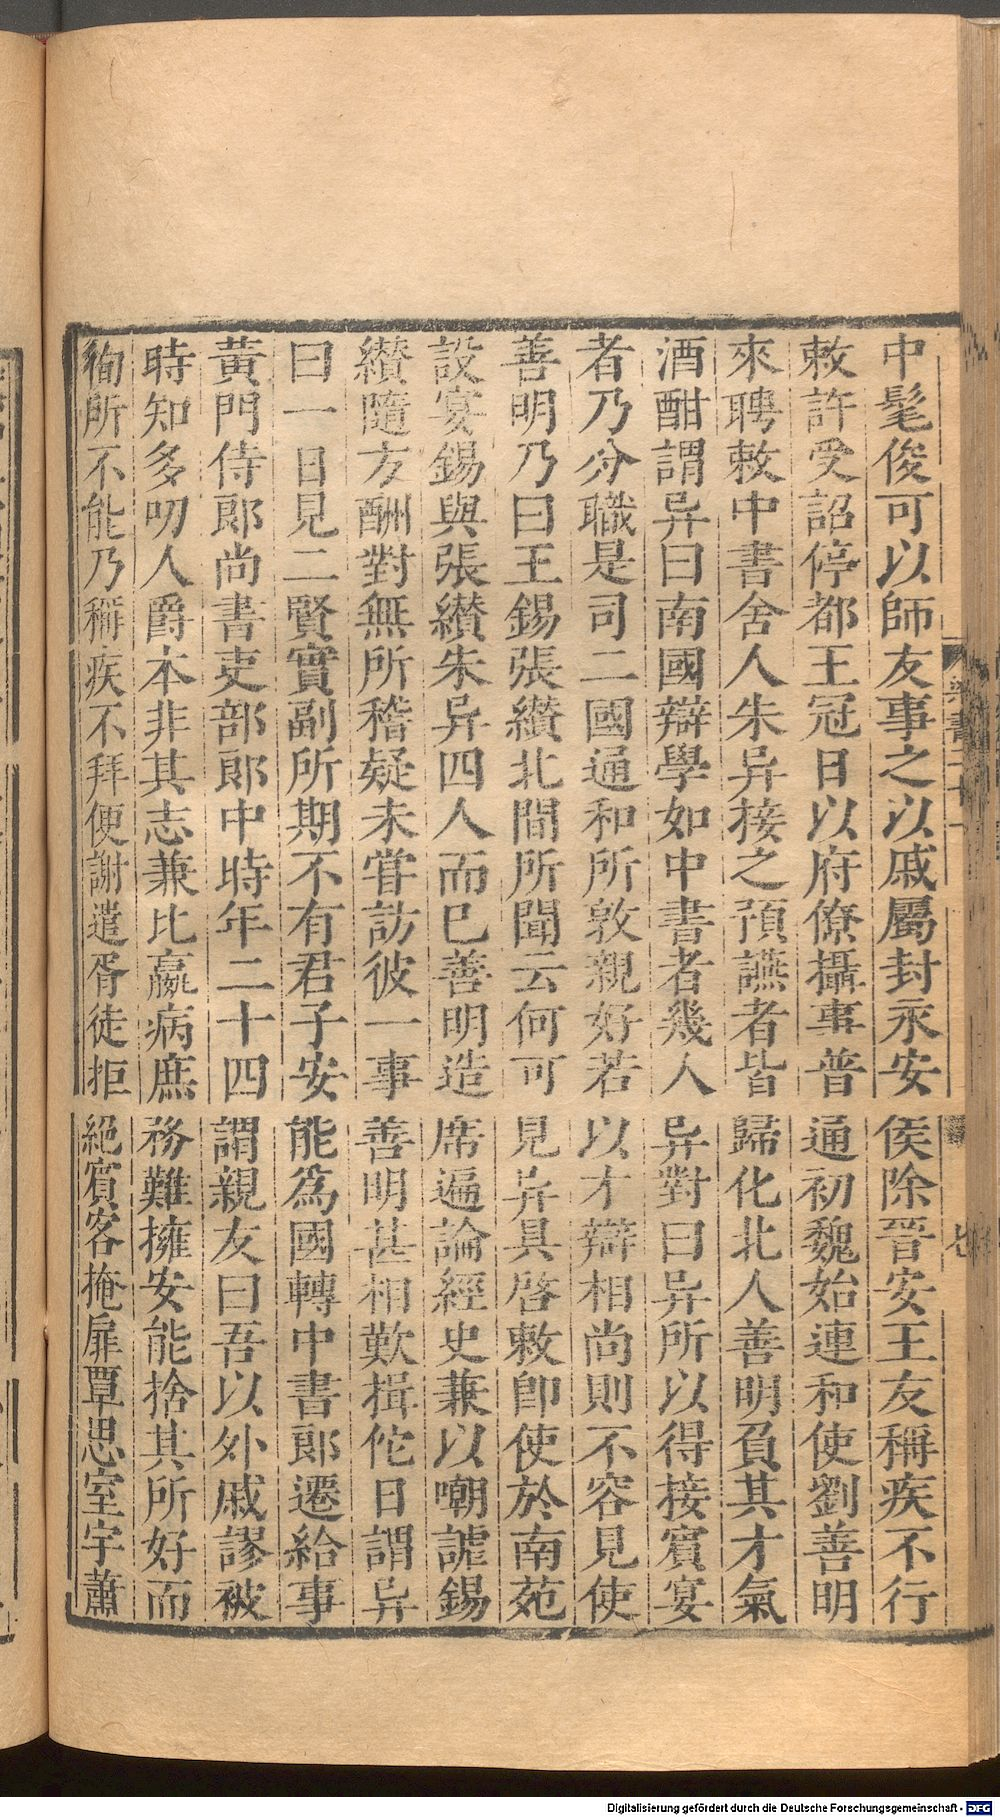 中髦俊可以師友事之以戚屬封永安侯除晉安王友稱疾不行
敕許受詔停都王冠日以府僚攝事普通初魏始連和使劉善明
來聘敕中書舍人朱异接之預讌者皆歸化北人善明負其才氣
酒酣謂异曰南國辯學如中書者幾人异對曰异所以得接賓宴
者乃分職是司二國通和所敦親好若以才辯相尚則不容見使
善明乃曰王錫張纉北間所聞云何可見异具啓敕卽使於南苑
設宴錫與張纉朱异四人而已善明造席遍論經史兼以嘲謔錫
纉隨方酬對無所稽疑未甞訪彼一事善明甚相歎揖佗日謂异
曰一日見二賢實副所期不有君子安能爲國轉中書郎遷給事
黃門侍郎尚書吏部郎中時年二十四謂親友曰吾以外戚謬被
時知多叨人爵本非其志兼比羸病庶務難擁安能捨其所好而
徇所不能乃稱疾不拜便謝遣胥徒拒絕賓客掩扉覃思室宇蕭
梁書二十一
七
Digitalisierung gefördert durch die Deutsche Forschungsgemeinschaft - DFG